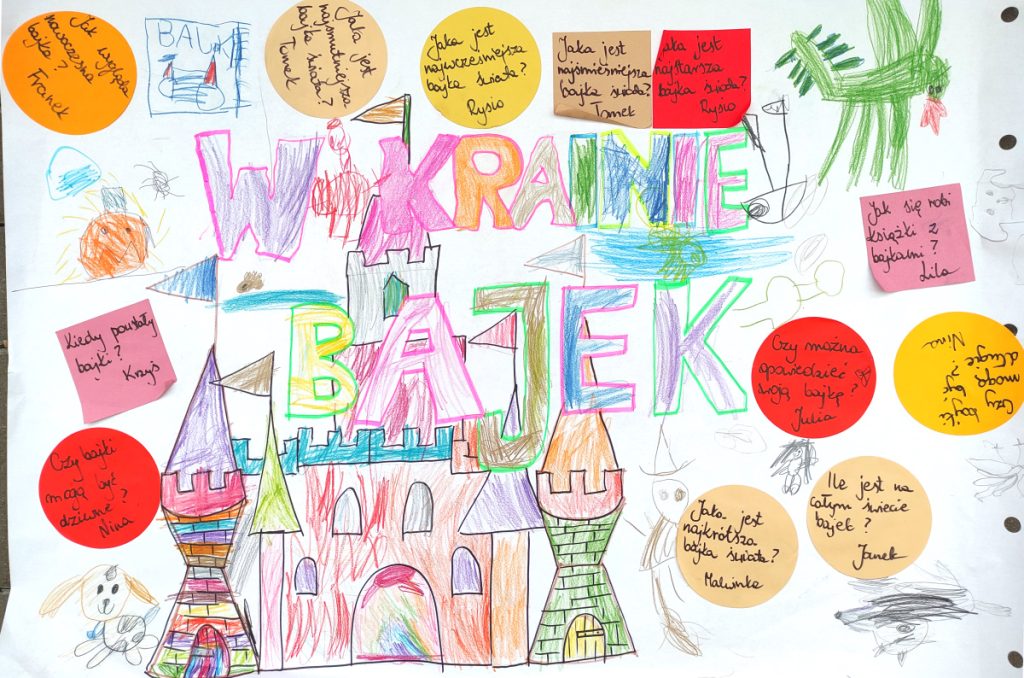 Jak wygląda
nowoczesna
bajka?
Franek
BAJKI
Jaka jest
najsmutniejsza
bajka świata?
Tomek
Jaka jest
najwcześniejsza
bajka świata?
Rysio
Jaka jest
najśmieśniejsza
bajka świata?
Tomek
Jaka jest
najstarsza
bajka świata?
Rysio
W KRAINIE
BAJEK
Jak się robi
książki z
bajkami?
Lila
Kiedy powstały
bajki?
Krzyś
Czy można
opowiedzieć
swoją bajkę?
Julia
Czy bajki
mogą być
długie
Nina
Czy bajki
mogą być
dziwne?
Nina
Jaka jest
najkrótsza
bajka świata?
Malwinka
Ile jest na
całym świecie
bajek?
Janek